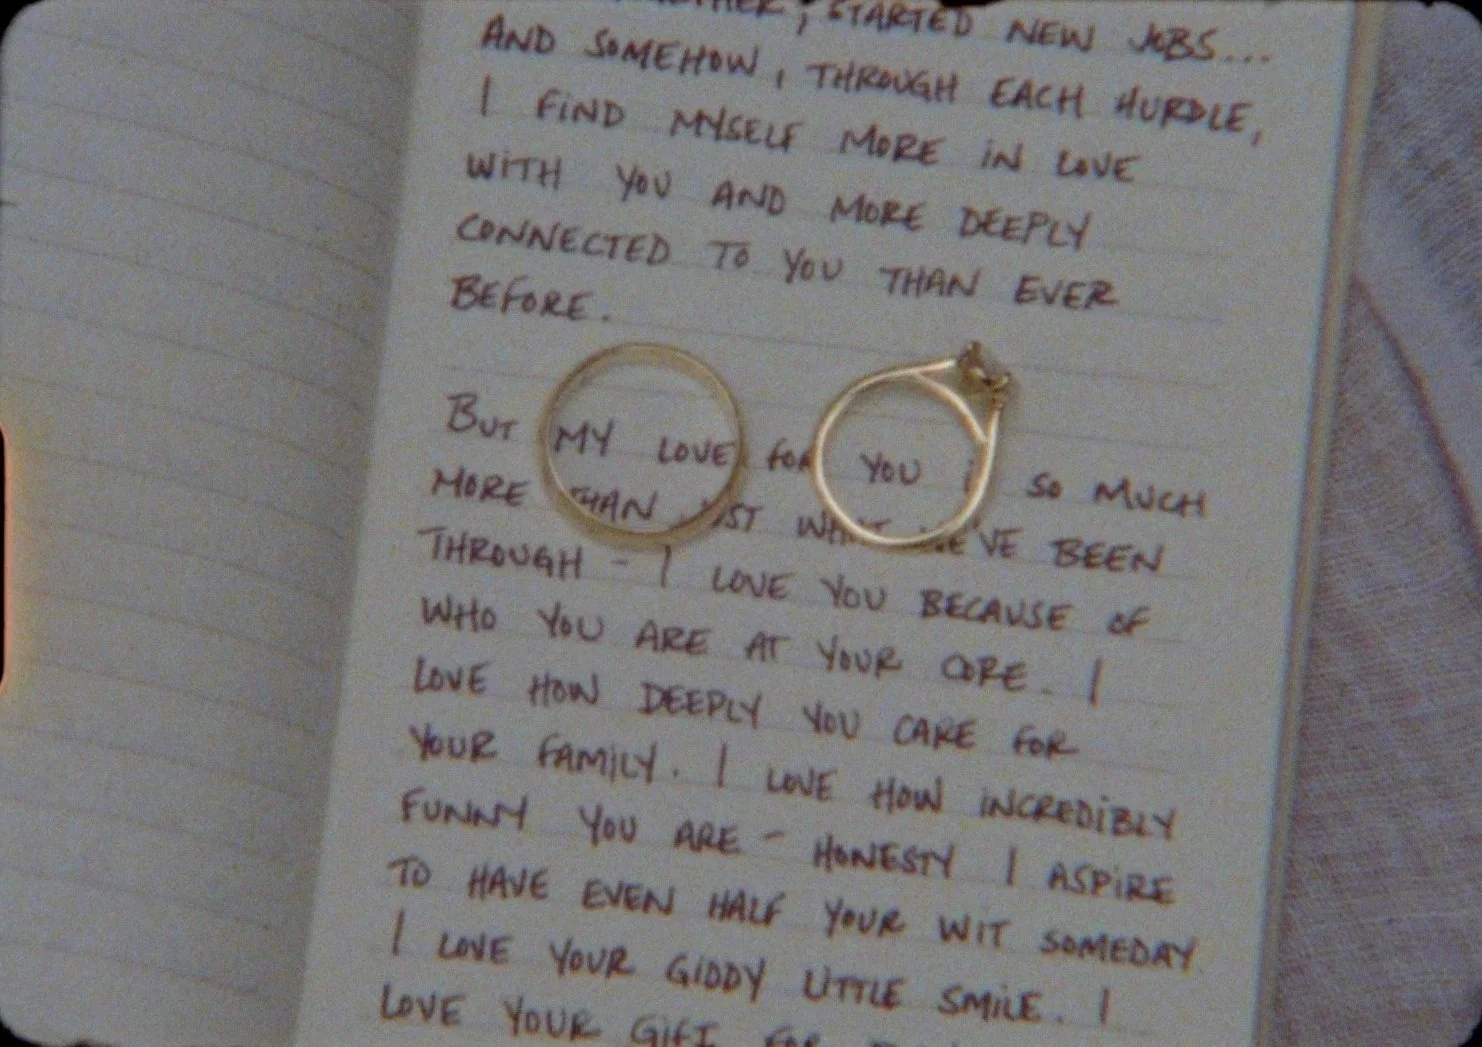 , STARTED NEW JOBS....
AND SOMEHOW, THROUGH EACH HURDLE,
I FIND MYSELF MORE IN LOVE
WITH YOU AND MORE DEEPLY
CONNECTED TO YOU THAN EVER
BEFORE.
BUT MY LOVE FOR YOU IS SO MUCH
MORE THAN JUST WHAT WE'VE BEEN
THROUGH - I LOVE YOU BECAUSE OF
WHO YOU ARE AT YOUR CORE. I
LOVE HOW DEEPLY YOU CARE FOR
YOUR FAMILY. I LOVE HOW INCREDIBLY
FUNNY YOU ARE - HONESTY I ASPIRE
TO HAVE EVEN HALF YOUR WIT SOMEDAY.
I LOVE YOUR GIDDY LITTLE SMILE. I
LOVE YOUR GIFT FOR